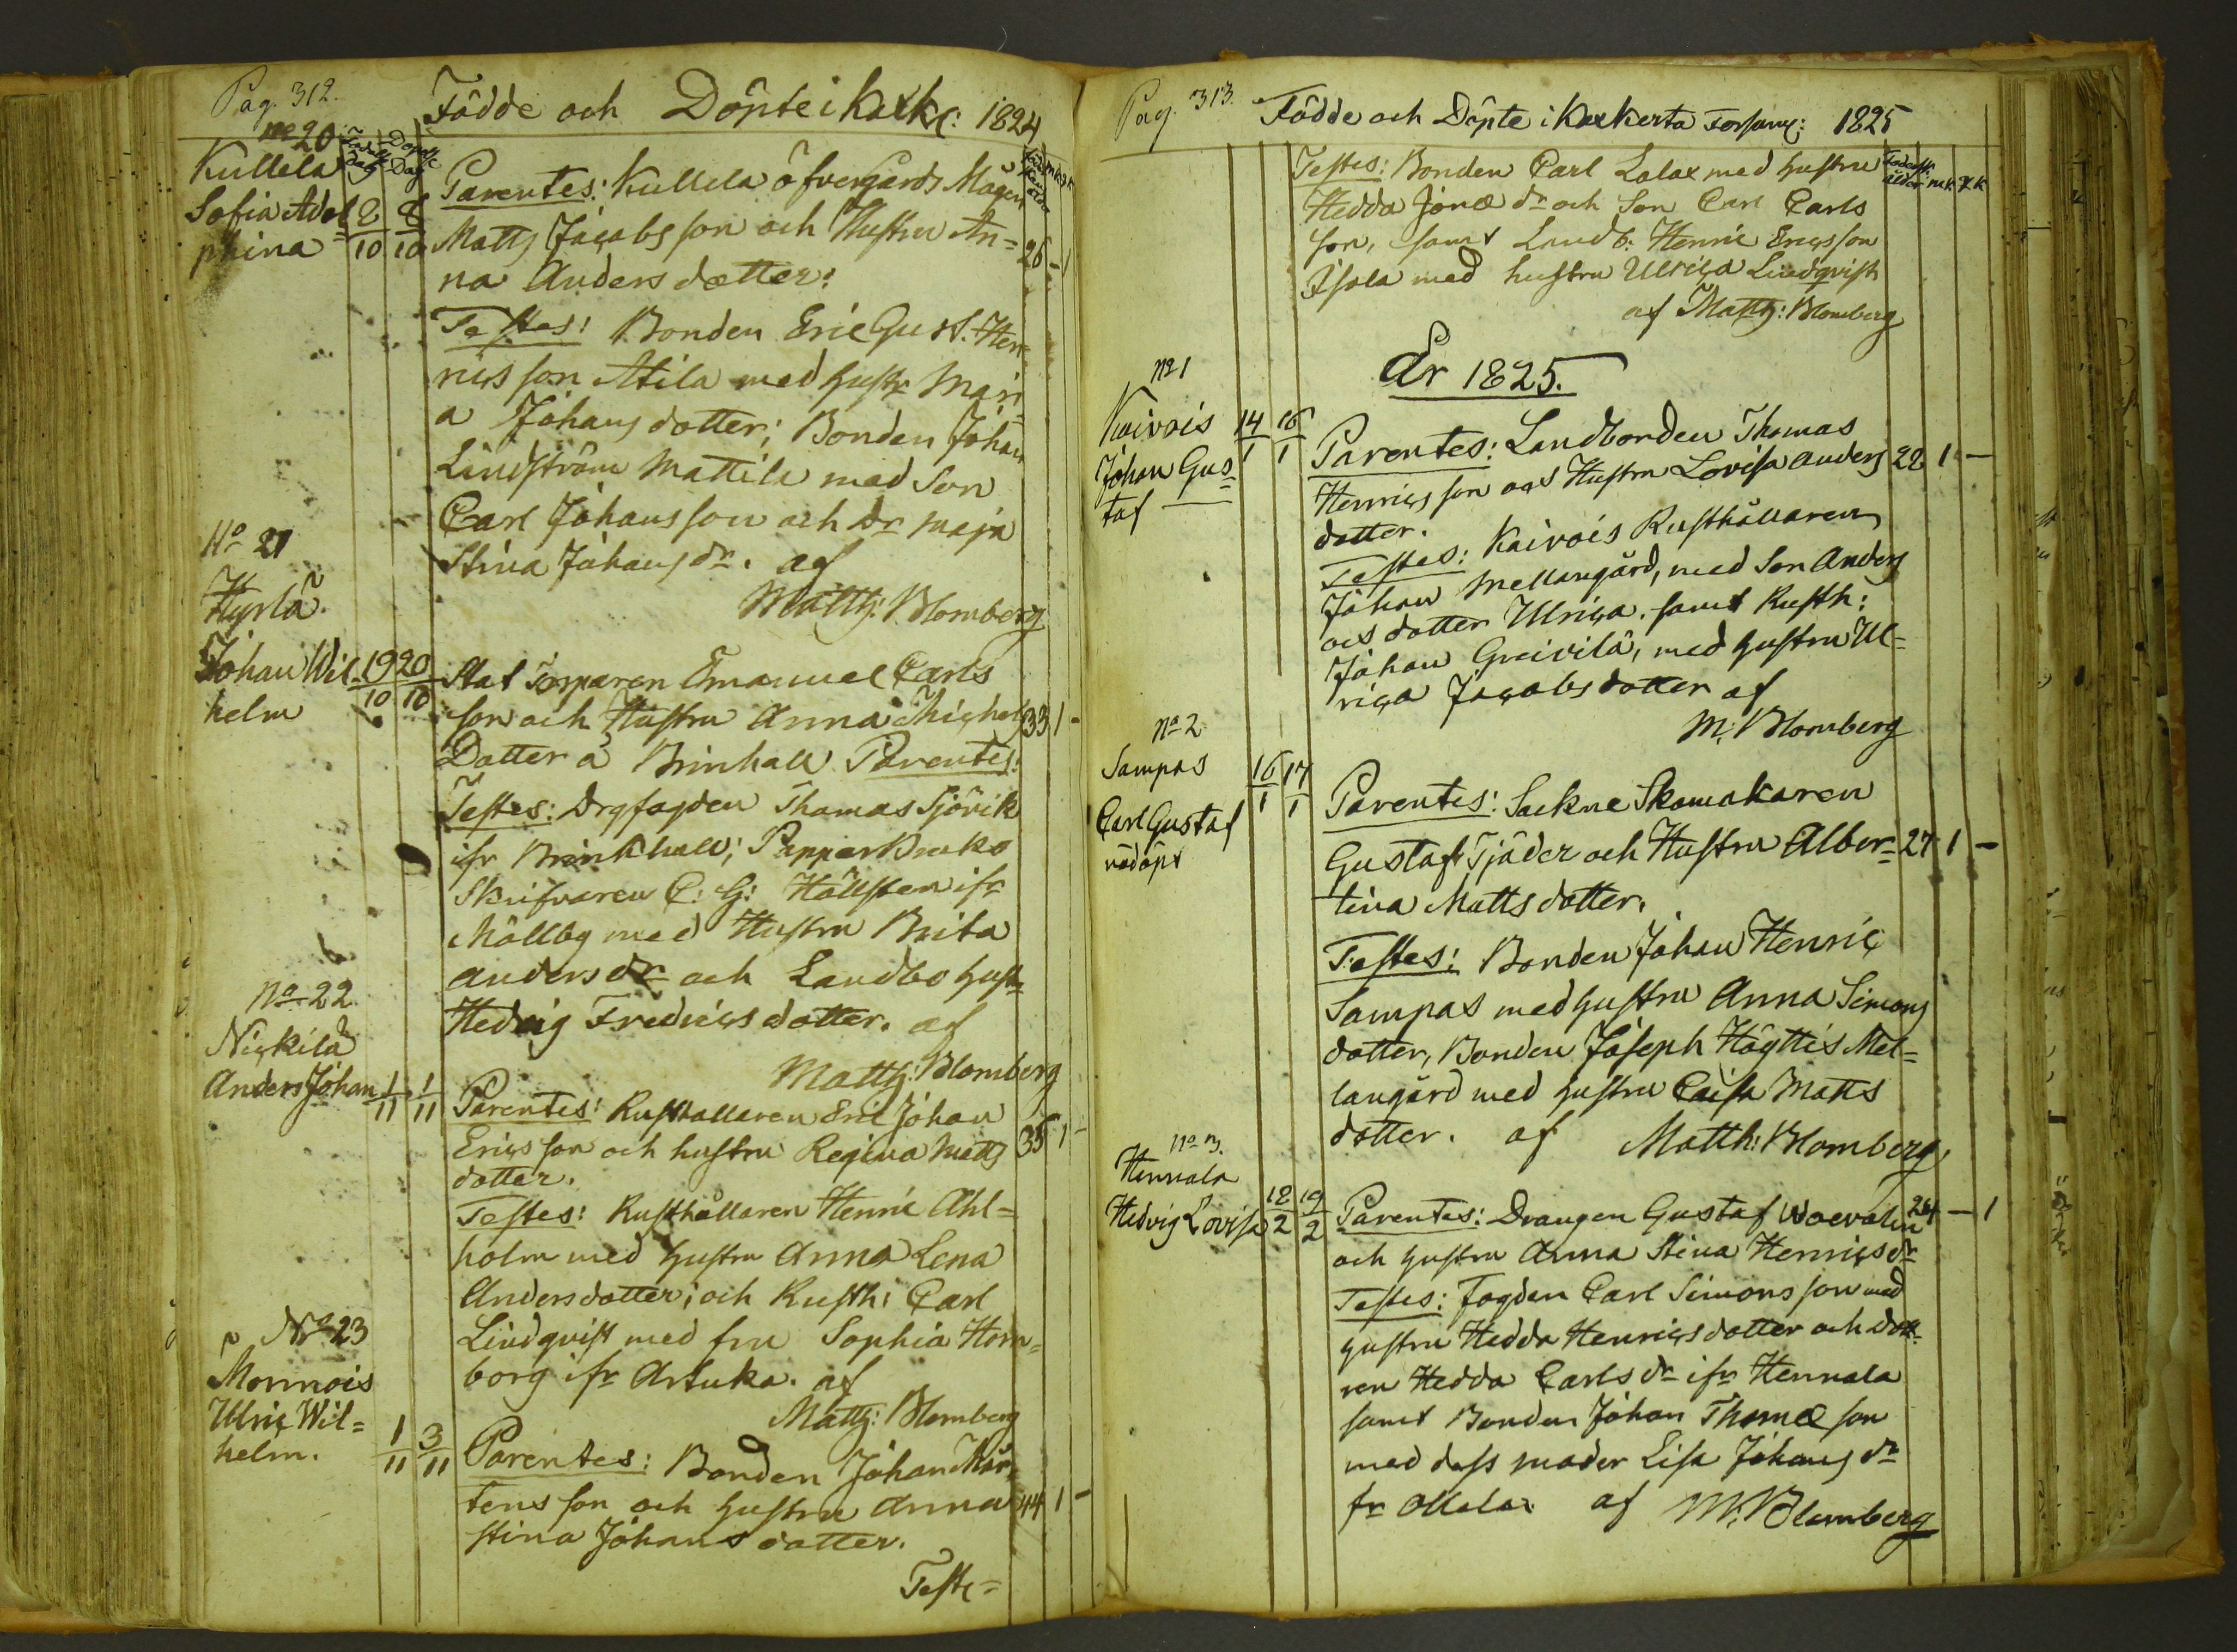 Pag. 312.
Födde och Döpte i Kaskr: 1824
No 20
Födelse Dag
Döpelse Dag
Kullela
Sofia Adol=
phina
8/10 8/10
Parentes: Kullela öfvergårds Mågen
Matts Jacobsson och Hustru An=
na Anders dotter:
26 - 1
Testes: Bonden Eric Gust. Hen=
ricsson Atila med hustr Mari=
a Johans dotter; Bonden Johan
Lindström Mattila med Son
Carl Johansson och Dr Maja
Stina Johans dr. af
Matth: Blomberg
No 21
Hyrlä.
Johan Wil=
helm
19/10 20/10
Stat Torparen Emanuel Carls
son och Hustru Anna Michels
Dotter å Brinkall Parentes:
33 1 -
Testes: Drgfogden Thomas Sjövik
ifr Brinkhall; Pappersbruks
Skrifvaren C: G: Hällsten ifr
Mällby med Hustru Brita
Anders dr och Landbo hustr
Hedvig Fredrics dotter. af
Matth: Blomberg
No 22
Nickilä
Anders Johan
1/11 1/11
Parentes: Rusthållaren Eric Johan
Ericsson och hustru Regina Matts
dotter.
35 1 -
Testes: Rusthållaren Henric Ahl=
holm med hustru Anna Lena
Anders dotter; och Rusth: Carl
Lindqvist med fru Sophia Horn=
borg ifr Artuka. af
Matth: Blomberg
No 23
Monnois
Ulric Wil=
helm.
1/11 3/11
Parentes: Bonden Johan Mår=
tens son och hustru Anna
Stina Johans dotter.
44 1 -
Teste=
Pag. 313.
Födde och Döpte i Kakskerta Församl: 1825
Testes: Bonden Carl Lalax med hustru
Hedda Jonæ dr och Son Carl Carls
son, samt Landb: Henric Ericsson
Isola med hustru Ulrica Lindqvist
af Matth: Blomberg
År 1825.
No 1
Kaivois
Johan Gus=
taf
14/1 16/1
Parentes: Landbonden Thomas
Henricsson och Hustru Lovisa Anders
dotter.
28 1 -
Testes: Kaivois Rusthållaren
Johan Mellangård, med Son Anders
och dotter Ulrica. samt Rusth:
Johan Greivilä, med hustru Ul=
rica Jacobs dotter af
M: Blomberg
No 2
Sampas
Carl Gustaf
nödöpt
16/1 17/1
Parentes: Sockne Skomakaren
Gustaf Tjäder och Hustru Alber=
tina Matts dotter.
27 1 -
Testes: Bonden Johan Henric
Sampas med hustru Anna Simons
dotter, Bonden Joseph Höyttis Mel=
langård med hustru Caisa Matts
dotter. af Matth: Blomberg
No 3.
Hennala
Hedvig Lovisa
18/2 19/2
Parentes: Drängen Gustaf
och hustru Anna Stina Henrics dr
24 - 1
Testes: Fogden Carl Simonsson med
hustru Hedda Henrics dotter och dott=
ren Hedda Carls dr ifr Hennala
samt Bonden Johan Thomæ son
med dess moder Lisa Johans dr
fr Ollola af M: Blomberg